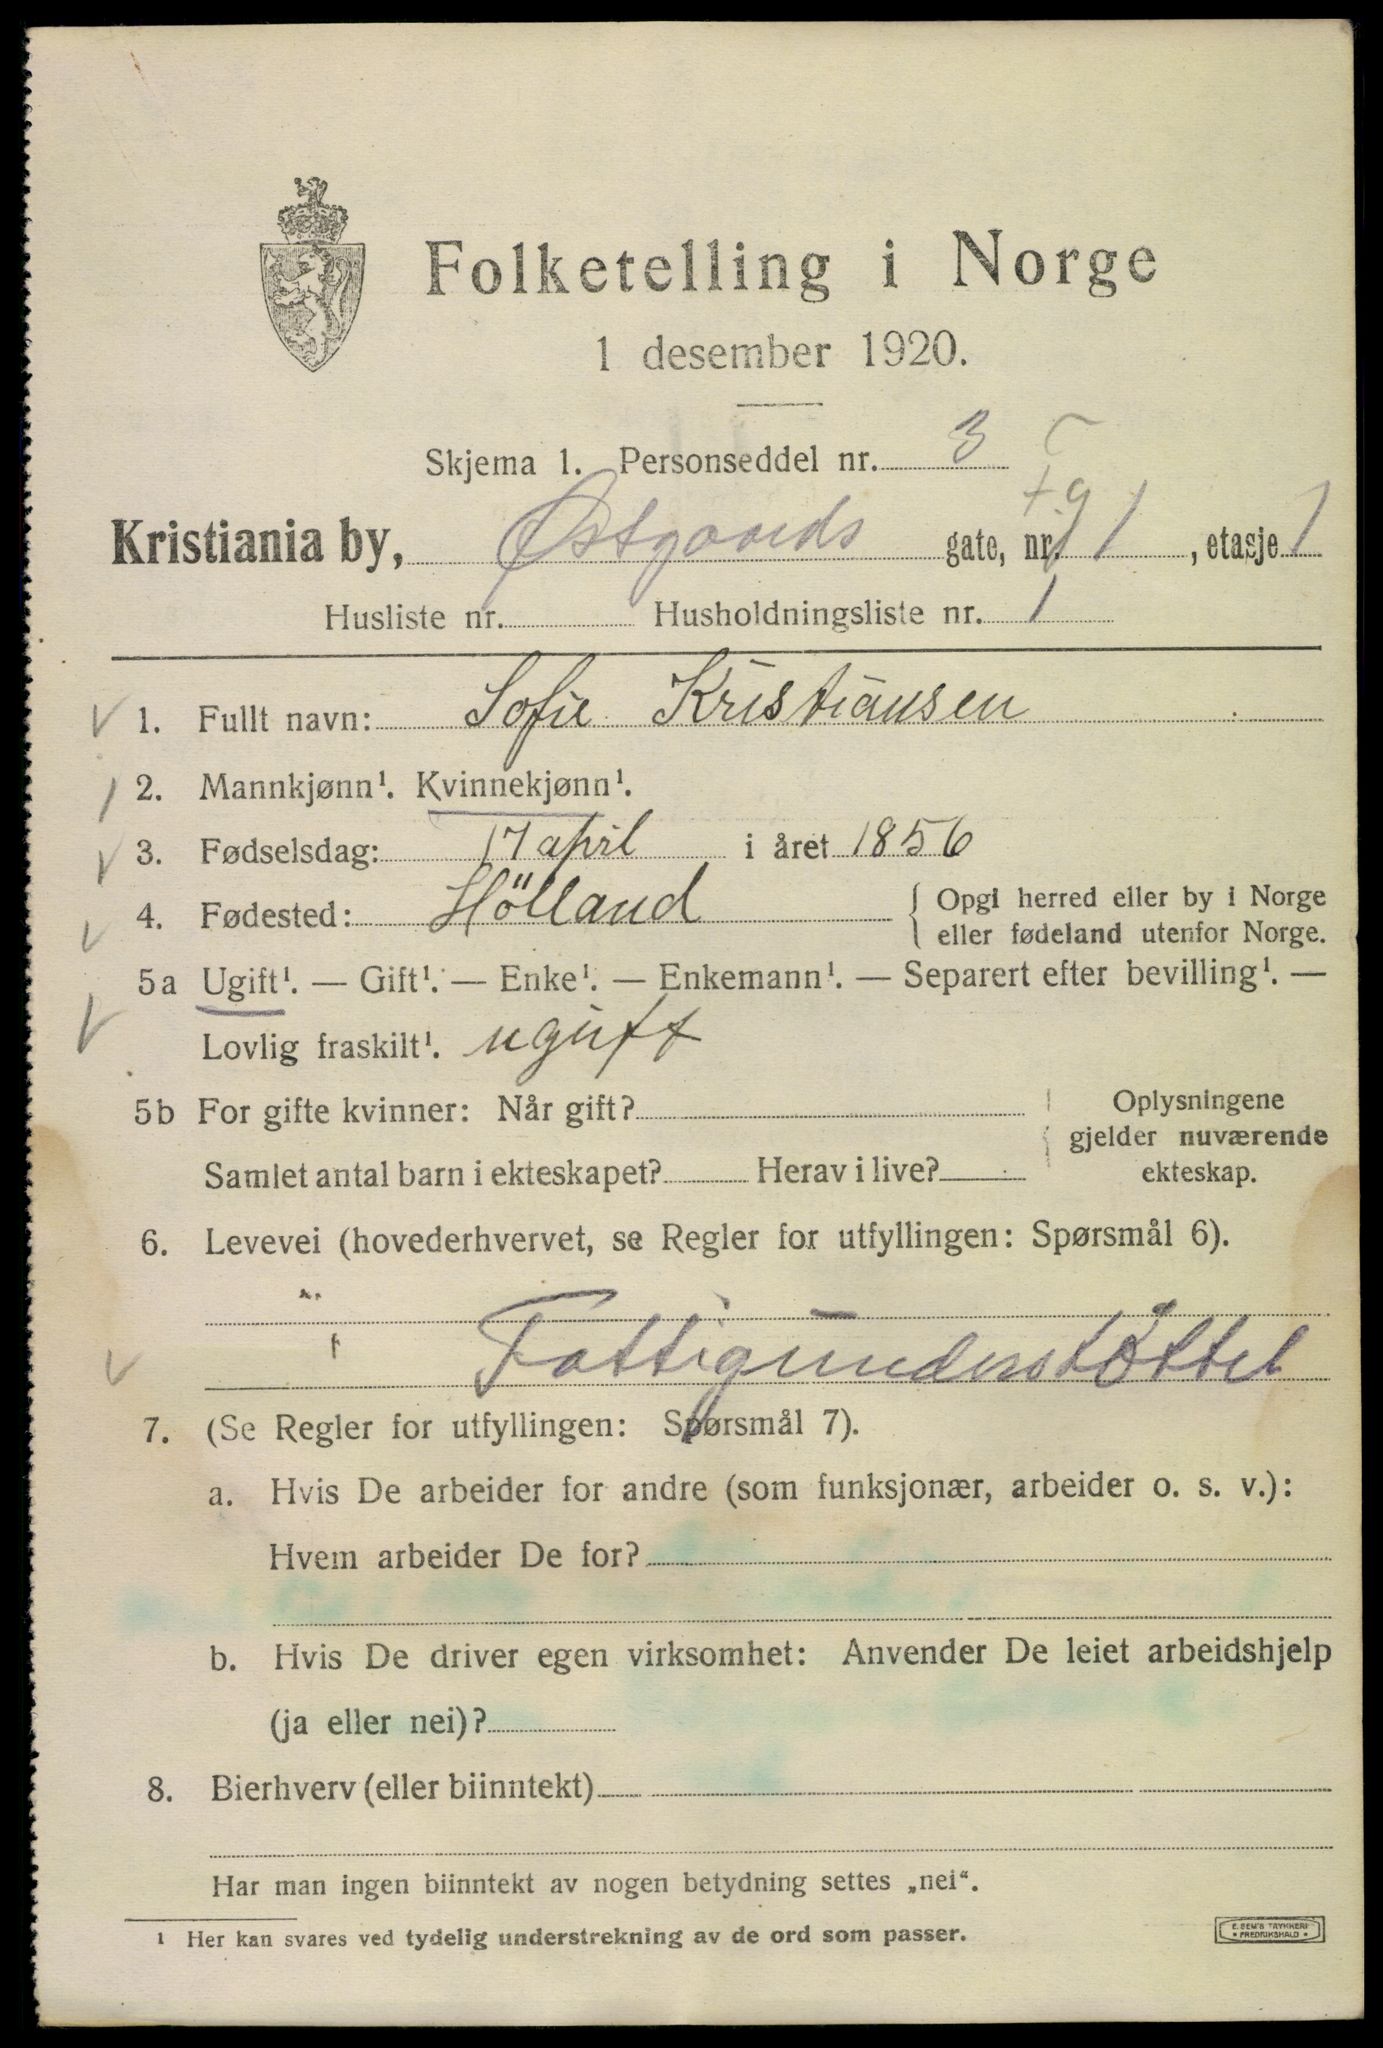 Folketelling i Norge
1 desember 1920.
Skjema 1. Personseddel nr. 3
Kristiania by, Østgaards gate, nr. 1, etasje 1
Husliste nr. Husholdningsliste nr. 1
1. Fullt navn: Sofie Kristiansen
2. Mannkjønn¹. Kvinnekjønn¹.
3. Fødselsdag: 17 april i året 1856
4. Fødested: Hölland { Opgi herred eller by i Norge
eller fødeland utenfor Norge.
5a Ugift¹. — Gift¹. — Enke¹. — Enkemann¹. — Separert efter bevilling¹. —
Lovlig fraskilt¹. ugift
5b For gifte kvinner: Når gift? Oplysningene
gjelder nuværende
Samlet antal barn i ekteskapet? Herav i live? ekteskap.
6. Levevei (hovederhvervet, se Regler for utfyllingen: Spørsmål 6).
Fattigunderstøttet
7. (Se Regler for utfyllingen: Spørsmål 7).
a. Hvis De arbeider for andre (som funksjonær, arbeider o. s. v.):
Hvem arbeider De for?
b. Hvis De driver egen virksomhet: Anvender De leiet arbeidshjelp
(ja eller nei)?
8. Bierhverv (eller biinntekt)
Har man ingen biinntekt av nogen betydning settes „nei“.
¹ Her kan svares ved tydelig understrekning av de ord som passer.
E. SEM'S TRYKKERI
FREDRIKSHALD